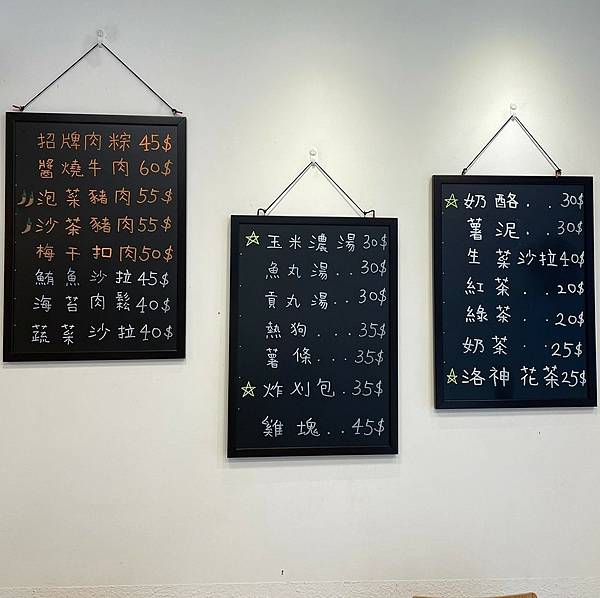 招牌肉粽 45$
醬燒牛肉 60$
泡菜豬肉 55$
沙茶豬肉 55$
梅干扣肉 50$
鮪魚沙拉 45$
海苔肉鬆 40$
蔬菜沙拉 40$
玉米濃湯 30$
魚丸湯..30$
貢丸湯..30$
熱狗...35$
薯條...35$
炸刈包.35$
雞塊..45$
奶酪..30$
薯泥..30$
生菜沙拉40$
紅茶..20$
綠茶..20$
奶茶..25$
洛神花茶25$